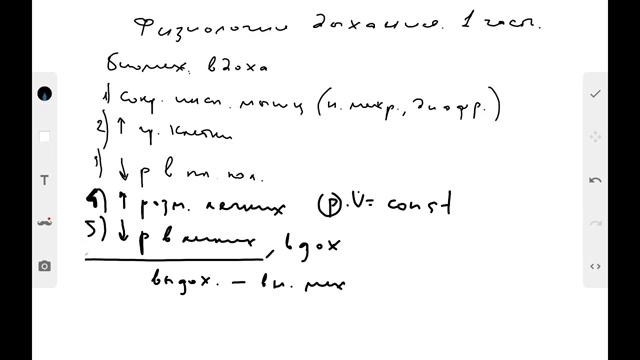 Физиология дыхания. 1 часть.
Биомех. вдоха
1) Сокр. инсп. мышц (н. межр., диафр.)
2) ↑ гр. клетки
3) ↓ p в пл. пол.
4) ↑ разм. легких p·V = const
5) ↓ p в легких, вдох
выдох. –
T